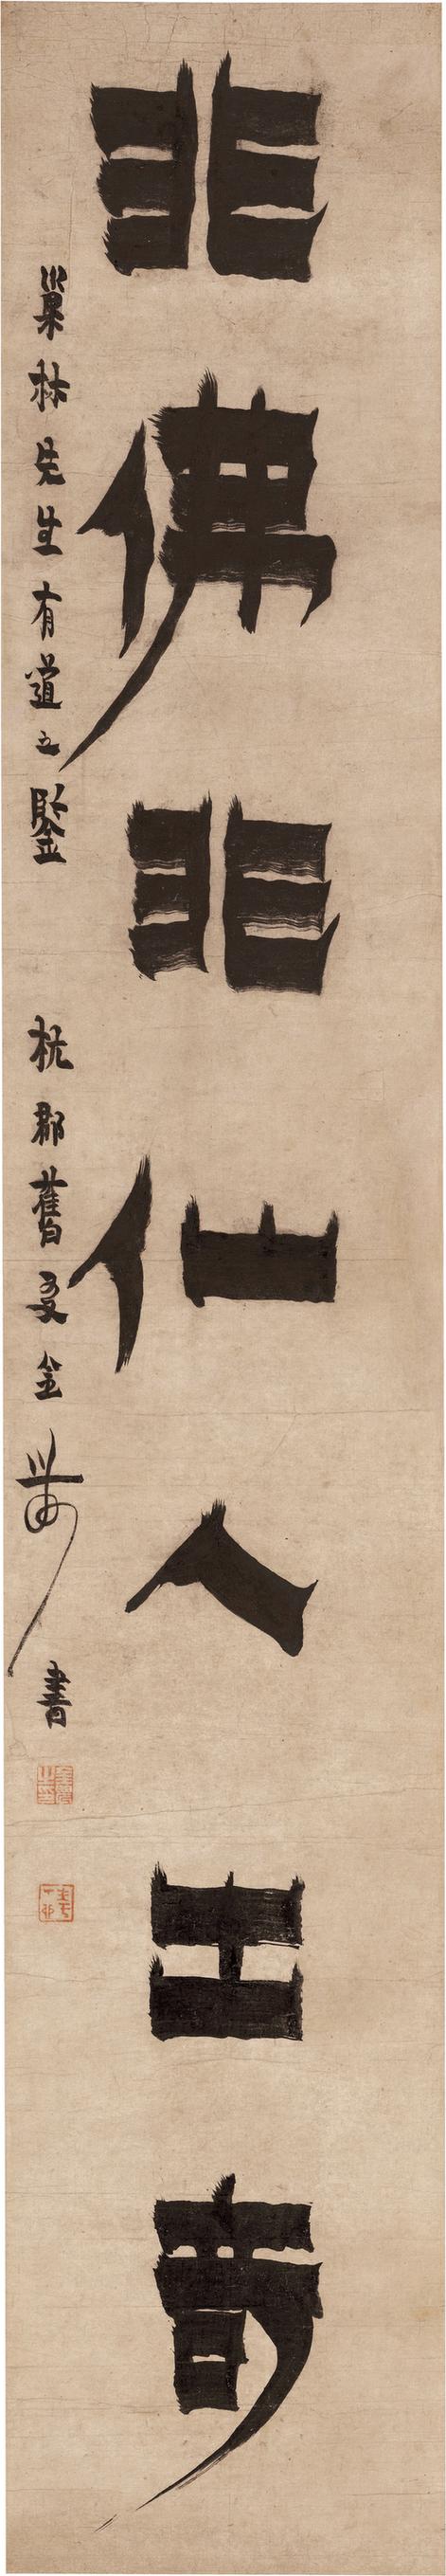 非佛非仙人出奇
巢林先生有道之鑒
杭郡舊友金農書